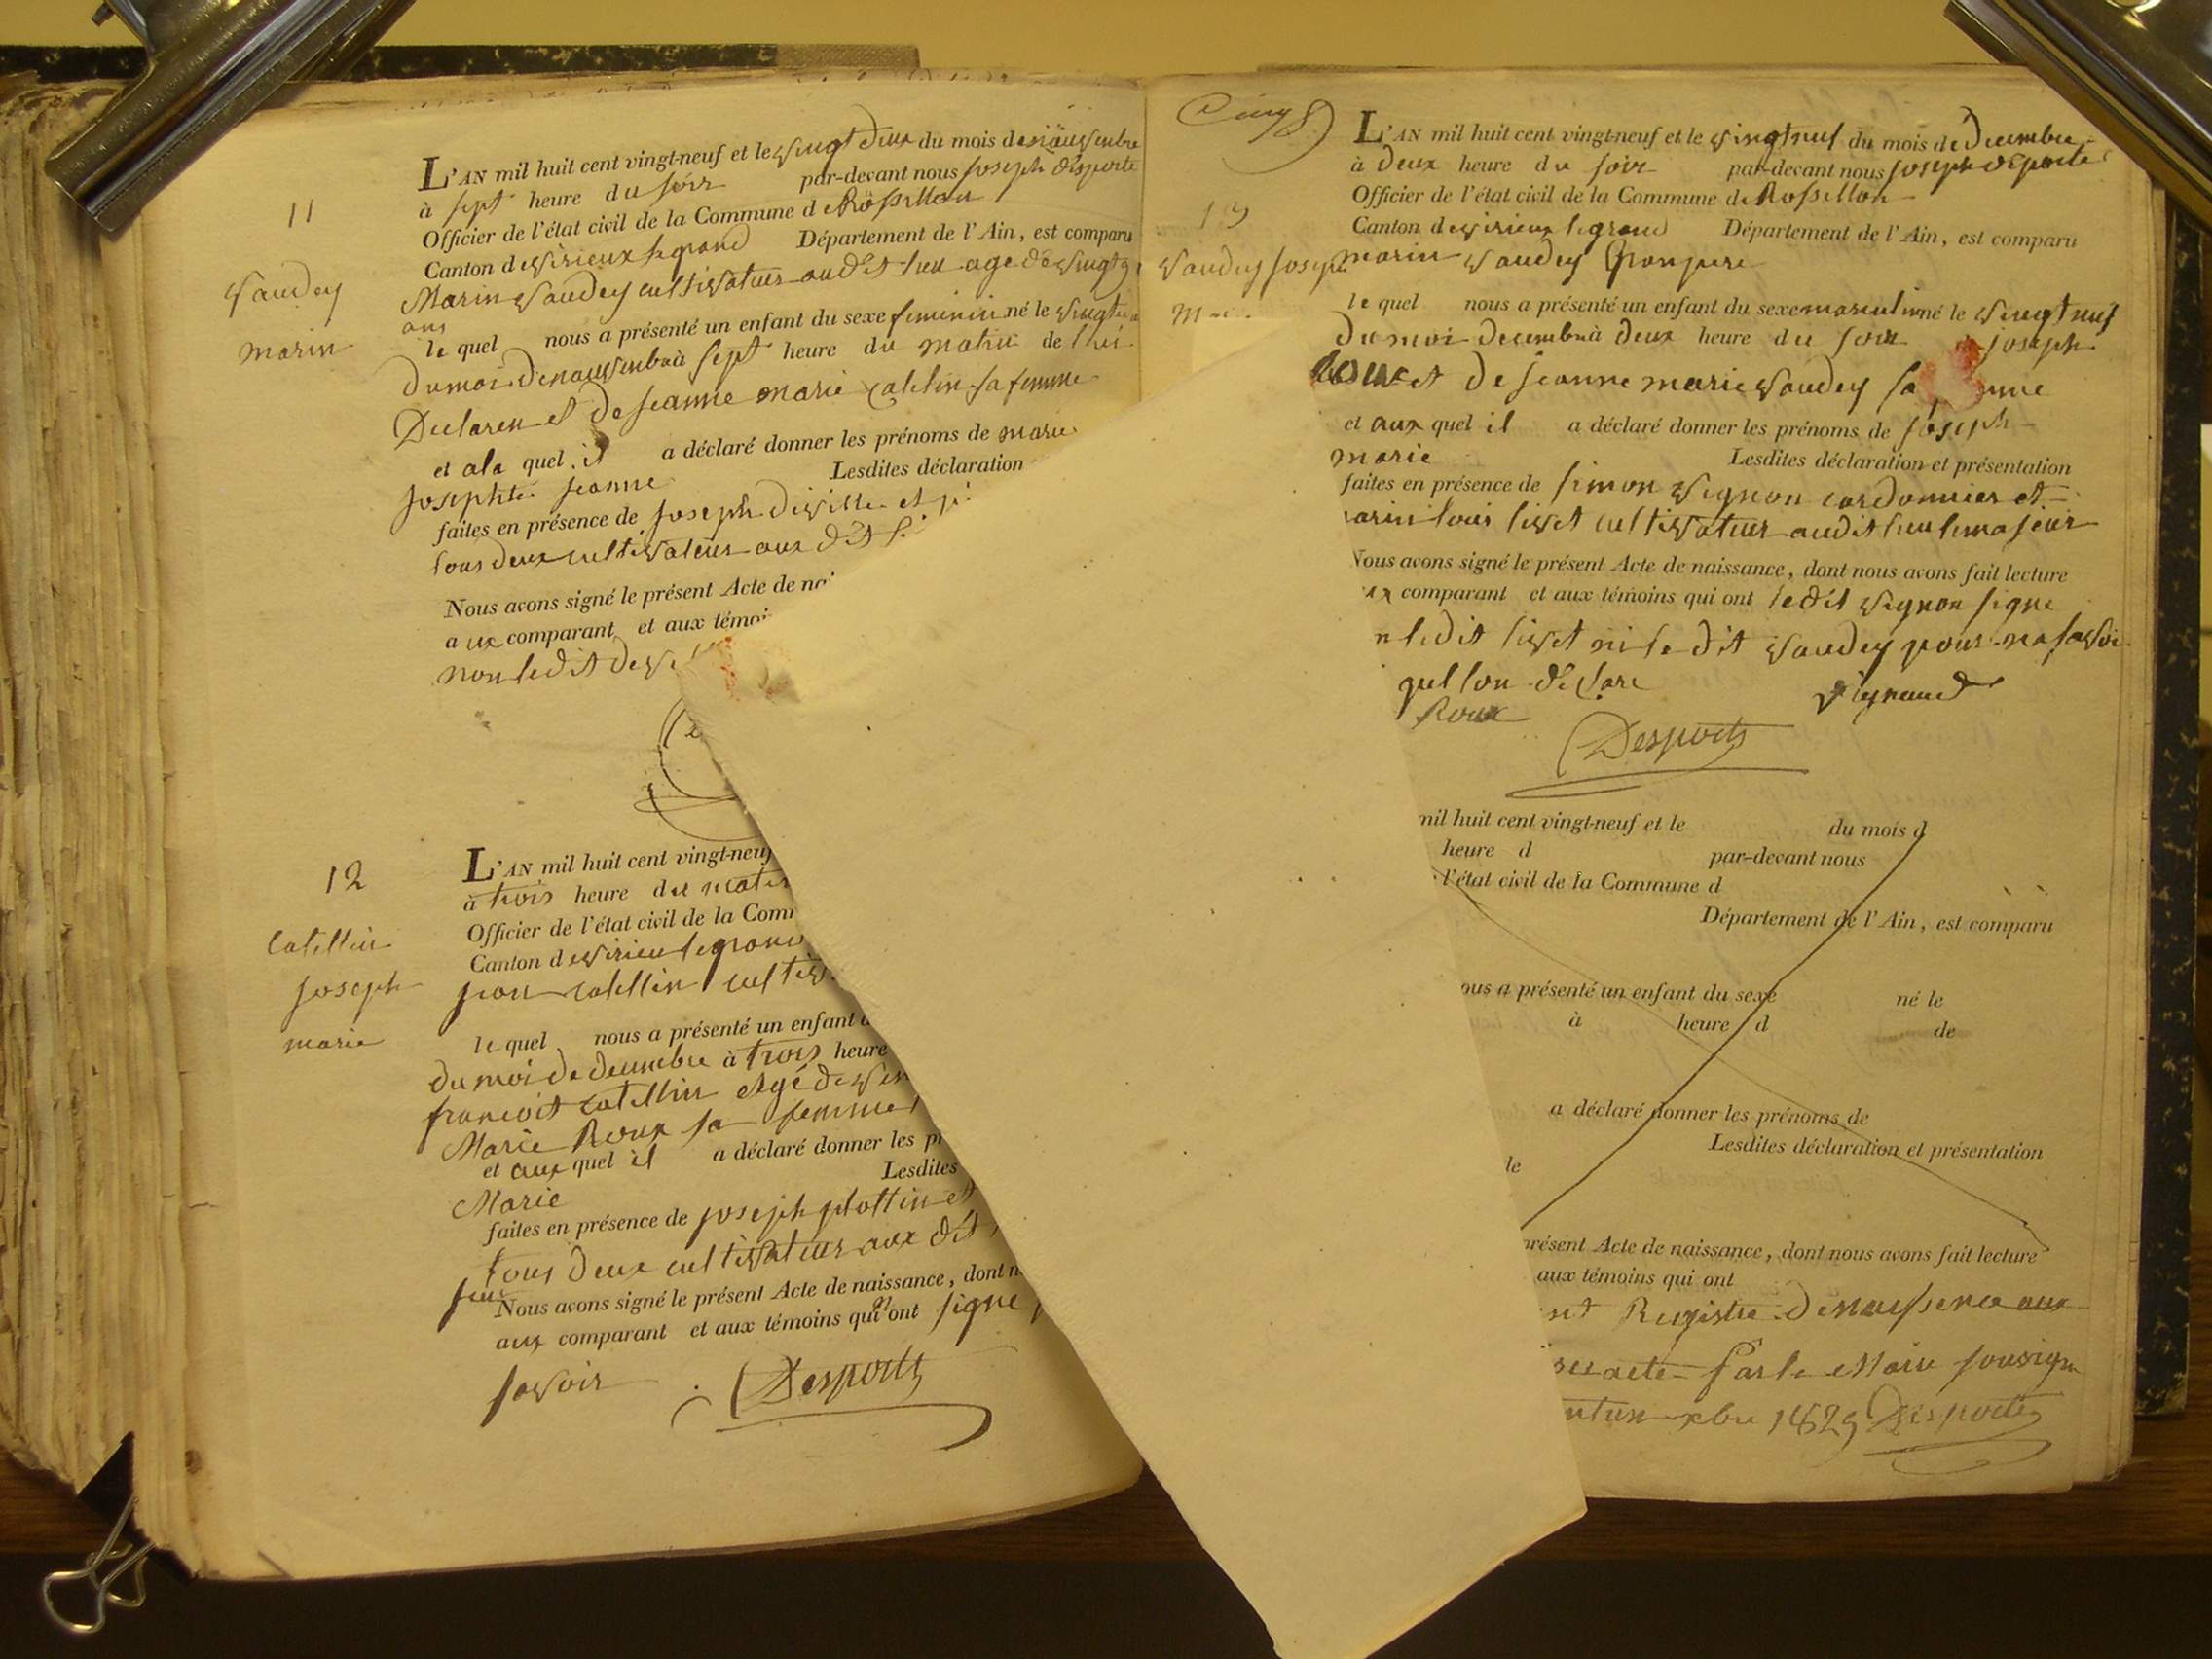 11
Vaudey
marin
L'AN mil huit cent vingt-neuf et le vingt deux du mois de nauvenbre
à sept heure du soir par-devant nous joseph desporte
Officier de l'état civil de la Commune de Rossillon
Canton de virieux legrand Département de l'Ain, est comparu
Marin Vaudey cultivateur audit lieu age de vingt
ans
le quel nous a présenté un enfant du sexe feminin né le vingt
du moi denauvenbre à sept heure du matin de lhui
Declaren et de jeanne marie catelin sa femme
et ala quel il a déclaré donner les prénoms de marie
josephte jeanne Lesdites déclaration
faites en présence de joseph deville et
tous deux cultivateur aux dit
Nous avons signé le présent Acte de
aux comparant et aux
non ledit
12
Catellin
joseph
marie
L'AN mil huit cent vingt-neuf
à trois heure du matin
Officier de l'état civil de la Com
Canton de virieu legrand
jean catellin cultiv
le quel nous a présenté un enfant
du moi de decembre à trois heure
francois catellin Agé de
Marie Roux sa femme
et aux quel il a déclaré donner les pr
Lesdites
Marie
faites en présence de joseph plottin et
tous deux cultivateur aux dit
jeur
Nous avons signé le présent Acte de naissance, dont n
aux comparant et aux témoins qui n ont signe
savoir
Desporte
13
Vaudey joseph
L'AN mil huit cent vingt-neuf et le vingt neuf du mois de decembre
à deux heure du soir par-devant nous joseph desporte
Officier de l'état civil de la Commune de Rossillon
Canton de virieux legrand Département de l'Ain, est comparu
marin Vaudey Granpere
le quel nous a présenté un enfant du sexe masculin né le vingt neuf
du moi decembre à deux heure du soir de joseph
Roux et de jeanne marie Vaudey sa
et aux quel il a déclaré donner les prénoms de joseph
marie Lesdites déclaration et présentation
faites en présence de simon Vignon cordonnier et
livet cultivateur audit lieu le majeur
Nous avons signé le présent Acte de naissance, dont nous avons fait lecture
ux comparant et aux témoins qui ont ledit Vignon signe
n ledit livet ni le dit Vaudey pour ne savoir
quel lon declare Vignaud
Roux
Desporte
mil huit cent vingt-neuf et le du mois d
heure d par-devant nous
l'état civil de la Commune d
Département de l'Ain, est comparu
ous a présenté un enfant du sexe né le
à heure d de
a déclaré donner les prénoms de
Lesdites déclaration et présentation
le
présent Acte de naissance, dont nous avons fait lecture
aux témoins qui ont
Registre denaissence aux
acte Par le Maire sousigne
xbre 1829 Desporte